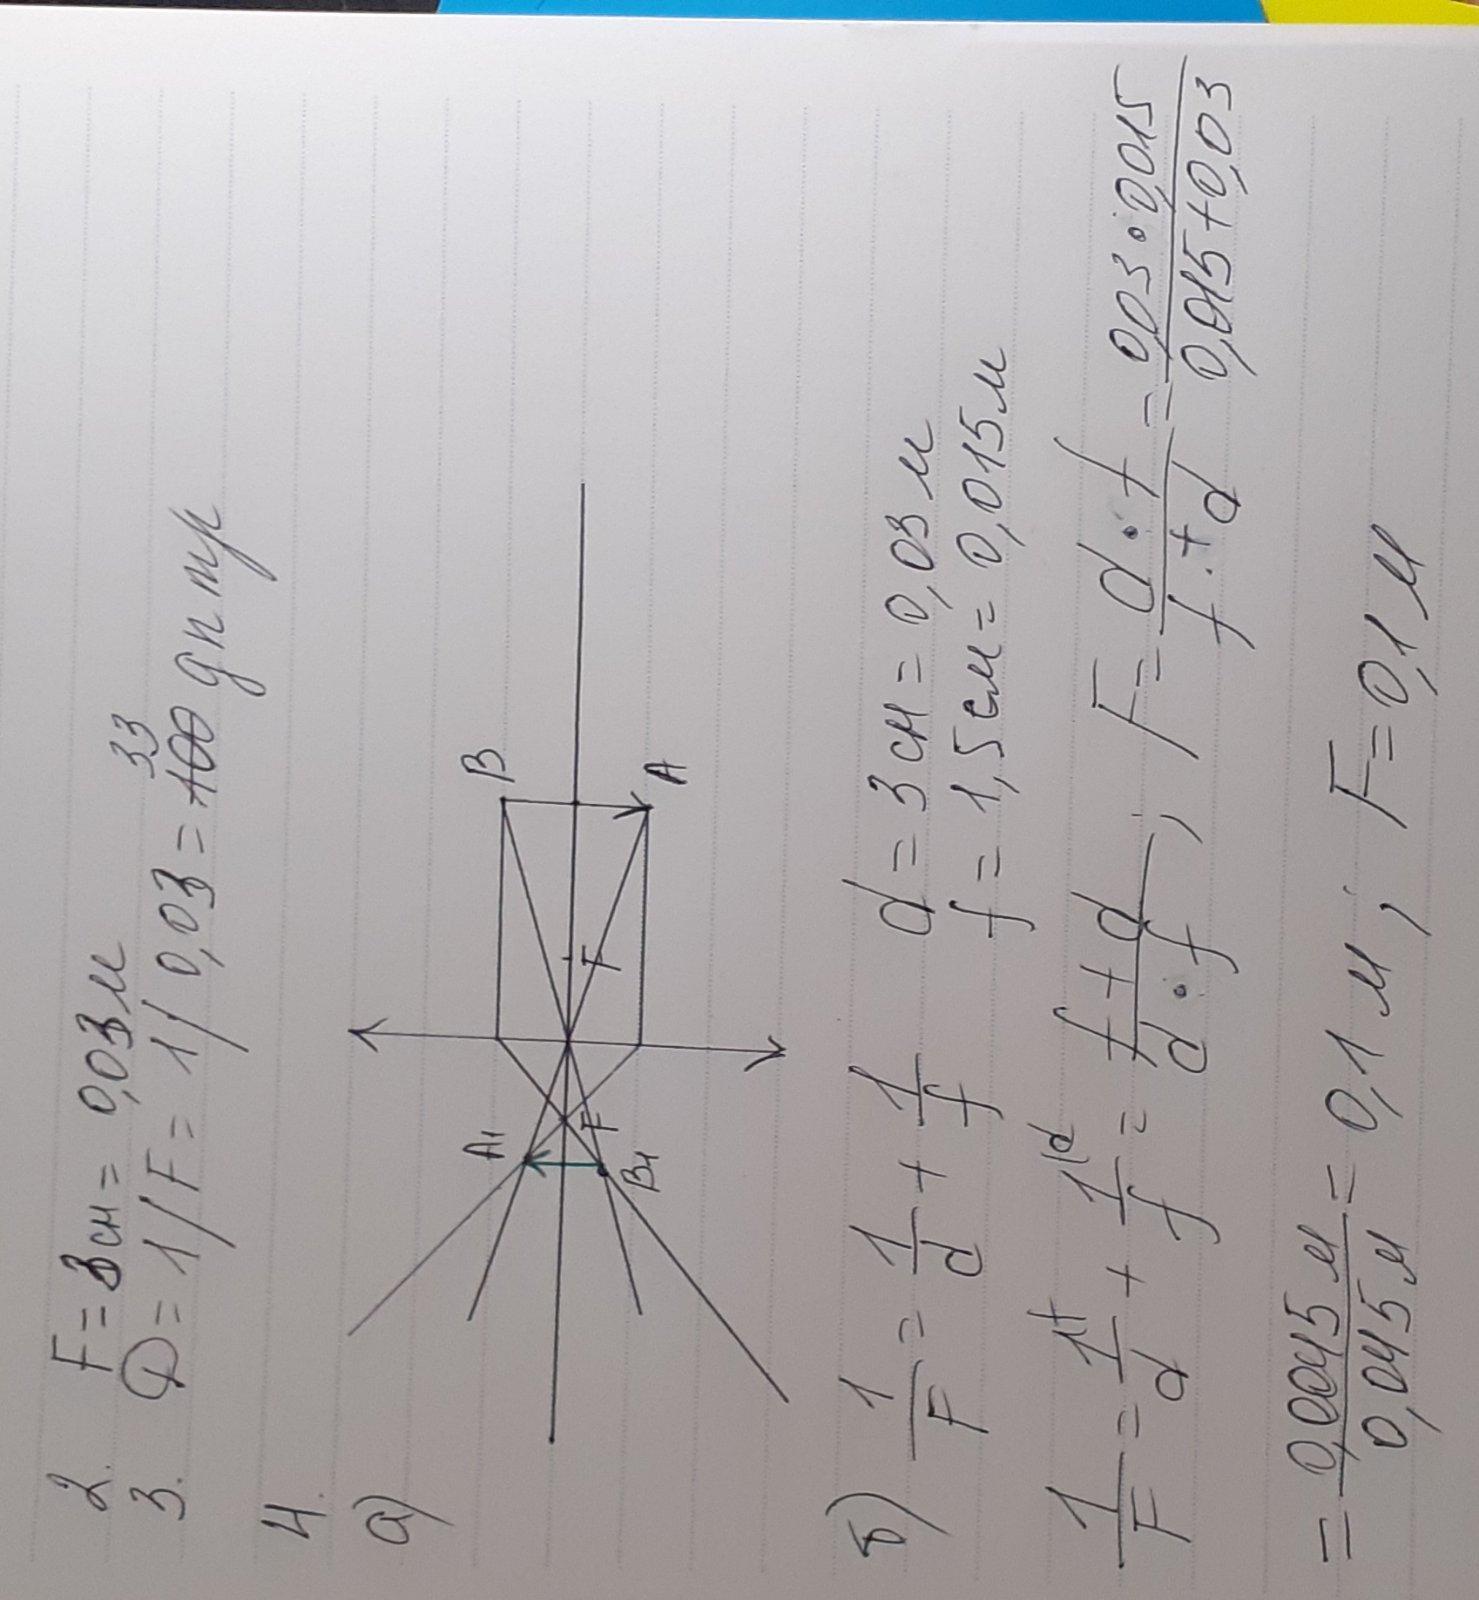 2. F = 3 см = 0,03 м
3. Ф = 1/F = 1/0,03 = 100 33 дптр
4.
а)
B
A1
F
F
A
B1
б) 1/F = 1/d + 1/f d = 3 см = 0,03 м
f = 1,5 см = 0,015 м
1/F = 1/d |f + 1/f |d = f + d / d · f ; F = d · f / f + d = 0,03 · 0,015 / 0,015 + 0,03
= 0,0045 м / 0,045 м = 0,1 м ; F = 0,1 м